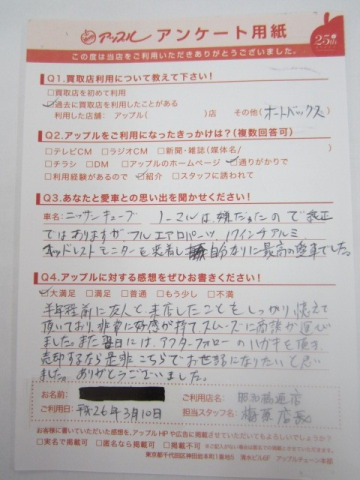 アップル アンケート用紙 25th
この度は当店をご利用いただきありがとうございました。
Q1.買取店利用について教えて下さい!
□買取店を初めて利用
☑過去に買取店を利用したことがある
利用した店舗: アップル( )店 その他(オートバックス)
Q2.アップルをご利用になったきっかけは?(複数回答可)
□テレビCM □ラジオCM □新聞・雑誌(媒体名/ )
□チラシ □DM □アップルのホームページ ☑通りがかりで
□利用経験があるので ☑紹介 □スタッフに誘われて
Q3.あなたと愛車との思い出を聞かせください!
車名:ニッサンキューブ ノーマルは嫌だったので純正
ではありますがフルエアロパーツ 17インチアルミ
ヘッドレストモニターを装着し 自分なりに最高の愛車でした。
Q4.アップルに対する感想をぜひお書きください!
☑大満足 □満足 □普通 □もう少し □不満
半年程前に友人と来店したこともしっかり憶えて
頂いており、非常に好感が持て、スムーズに商談が運び
ました。また翌日には、アフターフォローのハガキを頂き
売却するなら是非こちらでお世話になりたいと思い
ました。ありがとうございました。
お名前:
ご利用店名:
ご利用日:平成26年3月10日
担当スタッフ名: 店長
お客様に書いていただいた感想を、アップルHPや広告に掲載させていただいてもよろしいでしょうか?
□実名で掲載可 □匿名なら掲載可 □掲載不可
東京都千代田区神田岩本町1番地5 清水ビル6F アップルチェーン本部